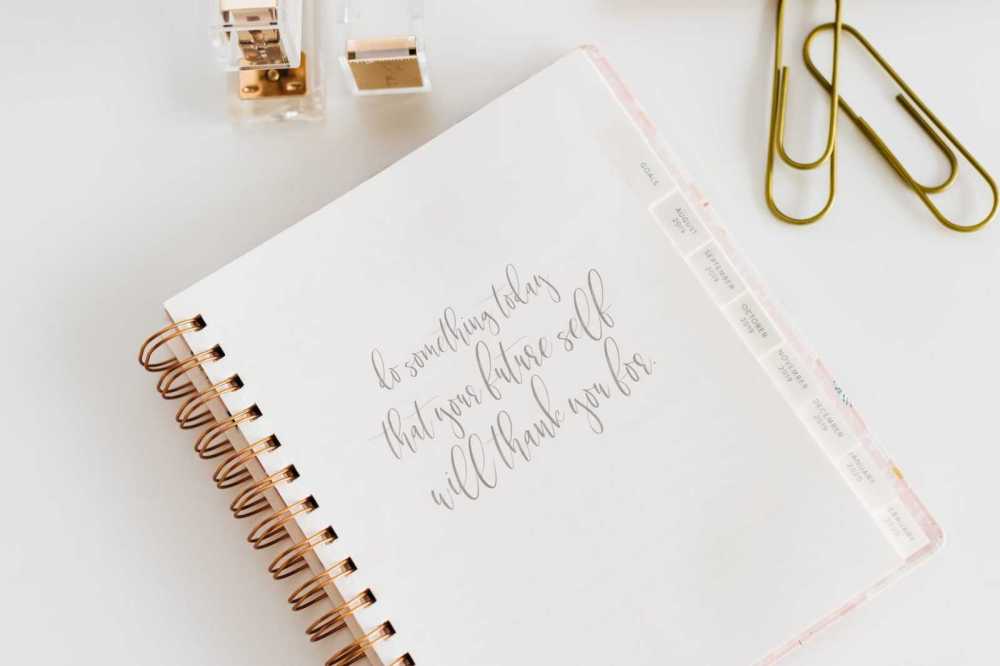 do something today
that your future self
will thank you for.
GOALS
AUGUST
2019
SEPTEMBER
2019
OCTOBER
2019
NOVEMBER
2019
DECEMBER
2019
JANUARY
2020
FEBRUARY
2020